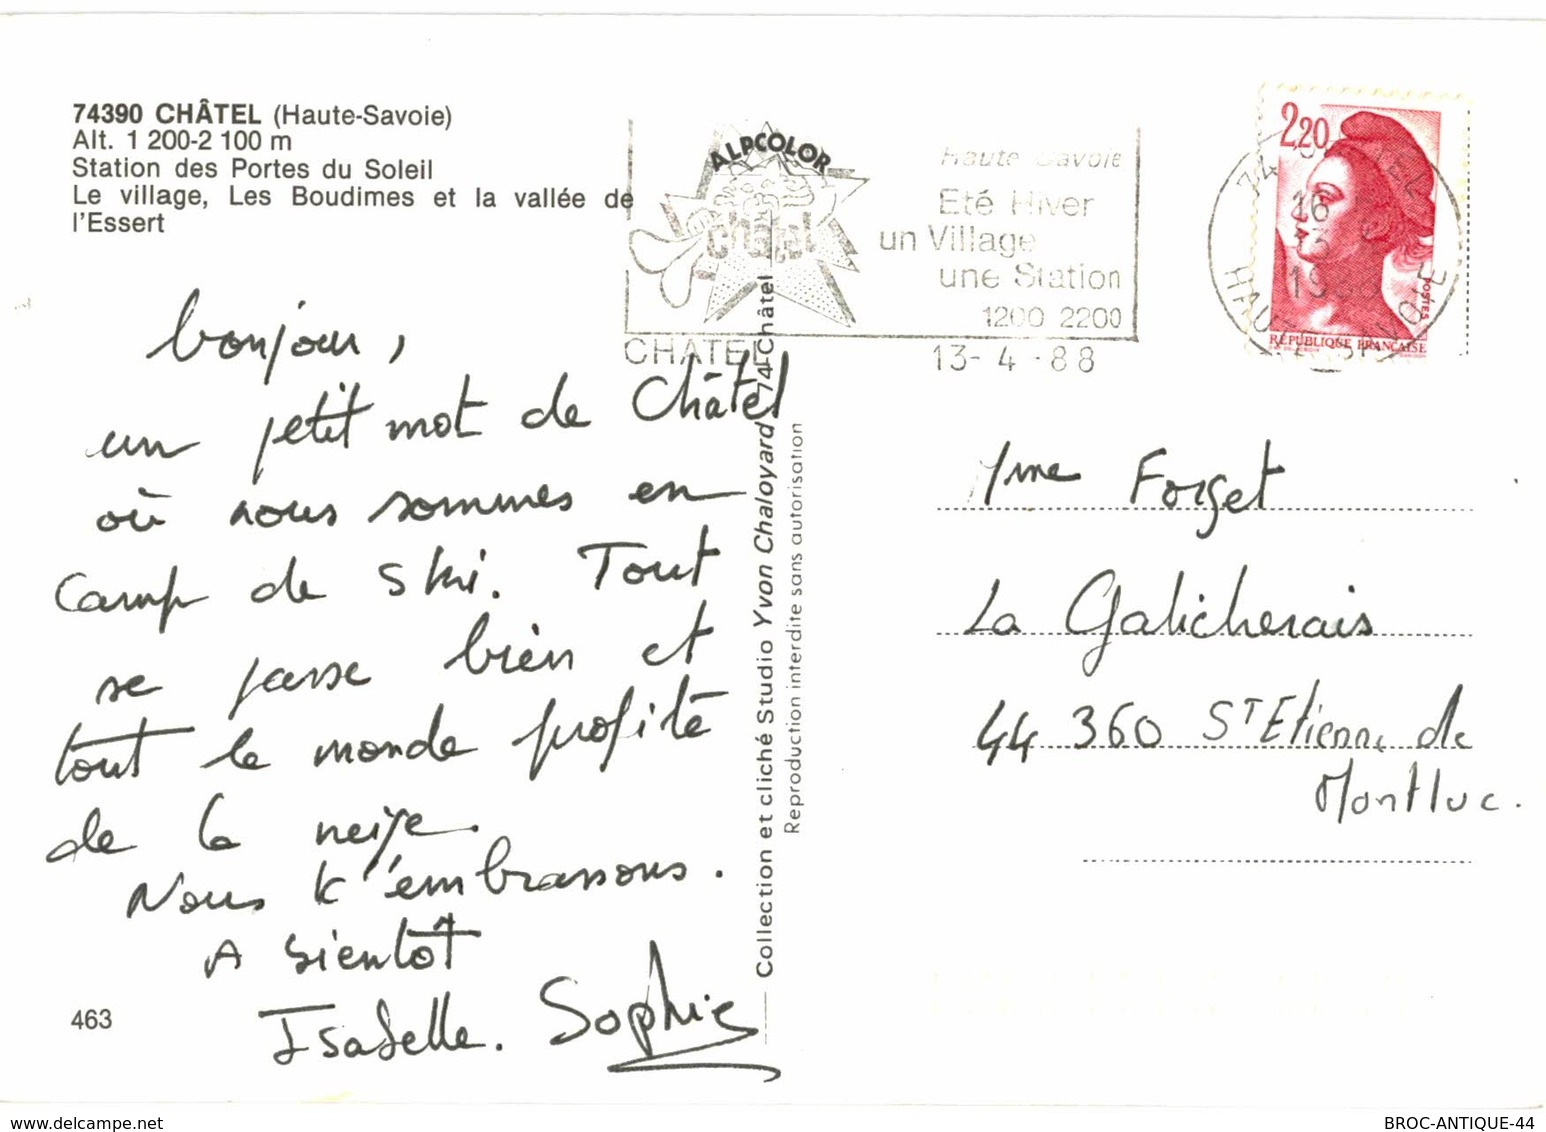 74390 CHÂTEL (Haute-Savoie)
Alt. 1 200-2 100 m
Station des Portes du Soleil
Le village, Les Boudimes et la vallée de
l'Essert
bonjour,
un petit mot de Châtel
où nous sommes en
camp de ski. Tout
se passe bien et
tout le monde profite
de la neige.
Nous t'embrassons.
A bientôt
Isabelle. Sophie
463
ALPCOLOR
châtel
Haute Savoie
Eté Hiver
un Village
une Station
1200 2200
CHATEL
13-4-88
Collection et cliché Studio Yvon Chaloyard 74-Châtel
Reproduction interdite sans autorisation
2,20
POSTES
RÉPUBLIQUE FRANÇAISE
Mme Forget
La Galicherais
44 360 St Etienne de
Montluc.
www.delcampe.net
BROC-ANTIQUE-44